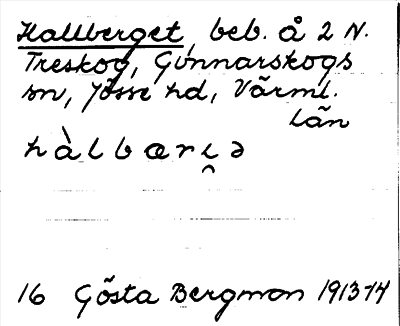 Hallberget, beb. å 2 N.
Treskog, Gunnarskogs
sn, Jösse hd, Värml.
län
hàlbærı̯ə
16 Gösta Bergman 1913-14